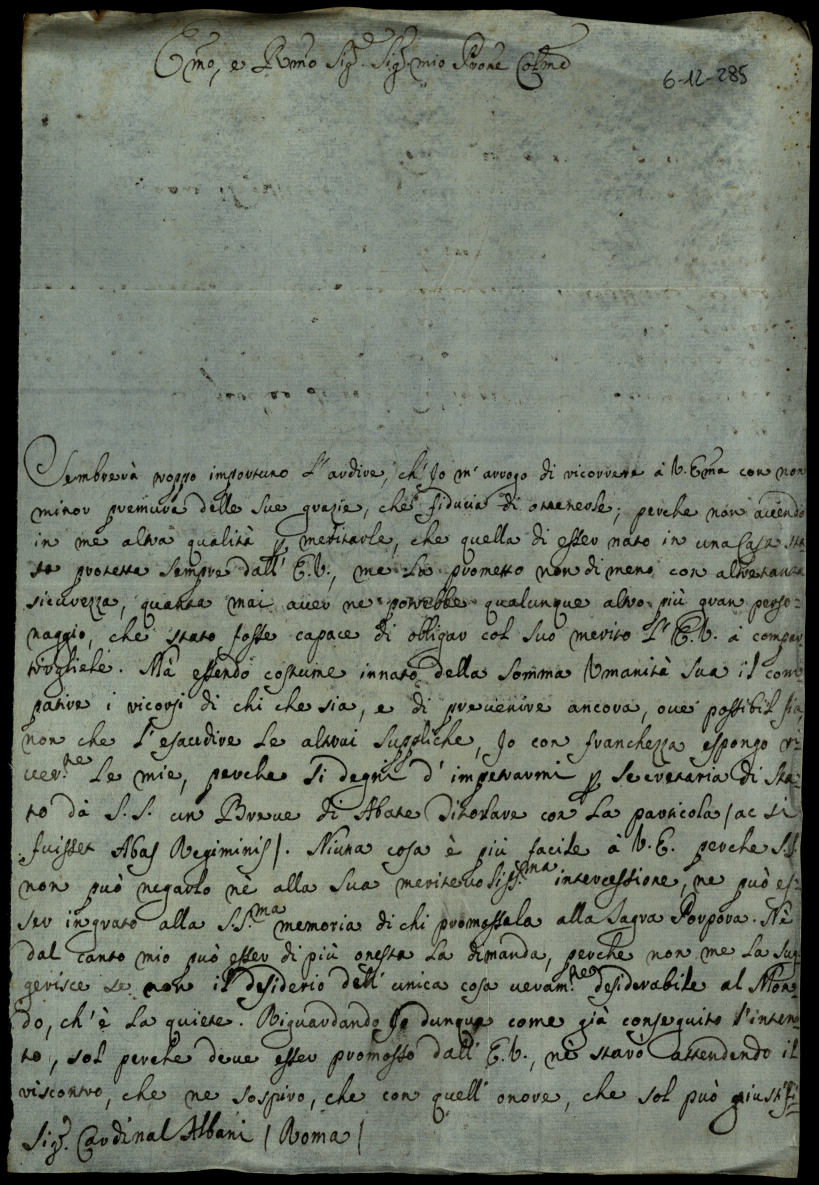 Emo, e Rmo Sig.r Sig.r mio Prone Colmo
6-12-285
Sembrerà troppo importuno l'ardire, ch'Jo m'arrogo di ricorrere à V. Ema con non
minor premura delle sue grazie, che fiducia di ottenerle; perche non avendo
in me altra qualità p meritarle, che quella di esser nato in una Casa sta-
ta protetta sempre dall'E.V., me la prometto non di meno con altretanta
sicurezza, quanta mai aver ne potrebbe qualunque altro più gran perso-
naggio, che stato fosse capace di obligar col suo merito l'E.V. à compar
tirgliele. Mà essendo costume innato della somma Umanità sua il com
patire i ricorsi di chi che sia, e di prevenire ancora, ove possibil sia
non che l'esaudire le altrui suppliche, Jo con franchezza espongo ri-
ver.te le mie, perche si degni d'impetrarmi p Secretaria di Sta-
to dà S.S. un Breve di Abate Titolare con la particola /ac si
fuisset Abas Regiminis/. Niuna cosa è più facile à V.E. perche S.S.
non può negarlo nè alla sua meritevolissi.ma intercessione, ne può es-
ser ingrato alla S.S.ma memoria di chi promossela alla Sagra Porpora. Nè
dal canto mio può esser di più onesta la dimanda, perche non me la sug
gerisce se non il desiderio dell'unica cosa veram.te desiderabile al Mon-
do, ch'è la quiete. Riguardando Jo dunque come già conseguito l'inten
to, sol perche deve esser promosso dall'E.V., nè starò attendendo il
riscontro, che ne sospiro, che con quell'onore, che sol può giustifi-
Sig.r Cardinal Albani / Roma /